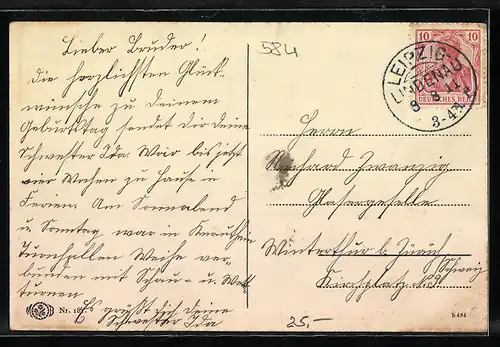 Lieber Bruder!
die herzlichsten Glück-
wünsche zu deinem
Geburtstag sendet dir deine
Schwester Ida. Wir bis jetzt
vier Wochen zu Hause in
Ferien. Am Sonnabend
u. Sonntag war in
Turnhallen Weihe ver-
bunden mit Schau- u. Wett-
turnen
Es grüßt dich deine
Schwester Ida
Nr. 18
584
10 10
DEUTSCHES REICH
LEIPZIG-
LINDENAU
8 8 11
3-4 N
Herrn
Richard Zwanzig
Glasergeselle
Winterthur b. Zürich
Schweiz
Kirchplatz
25,-